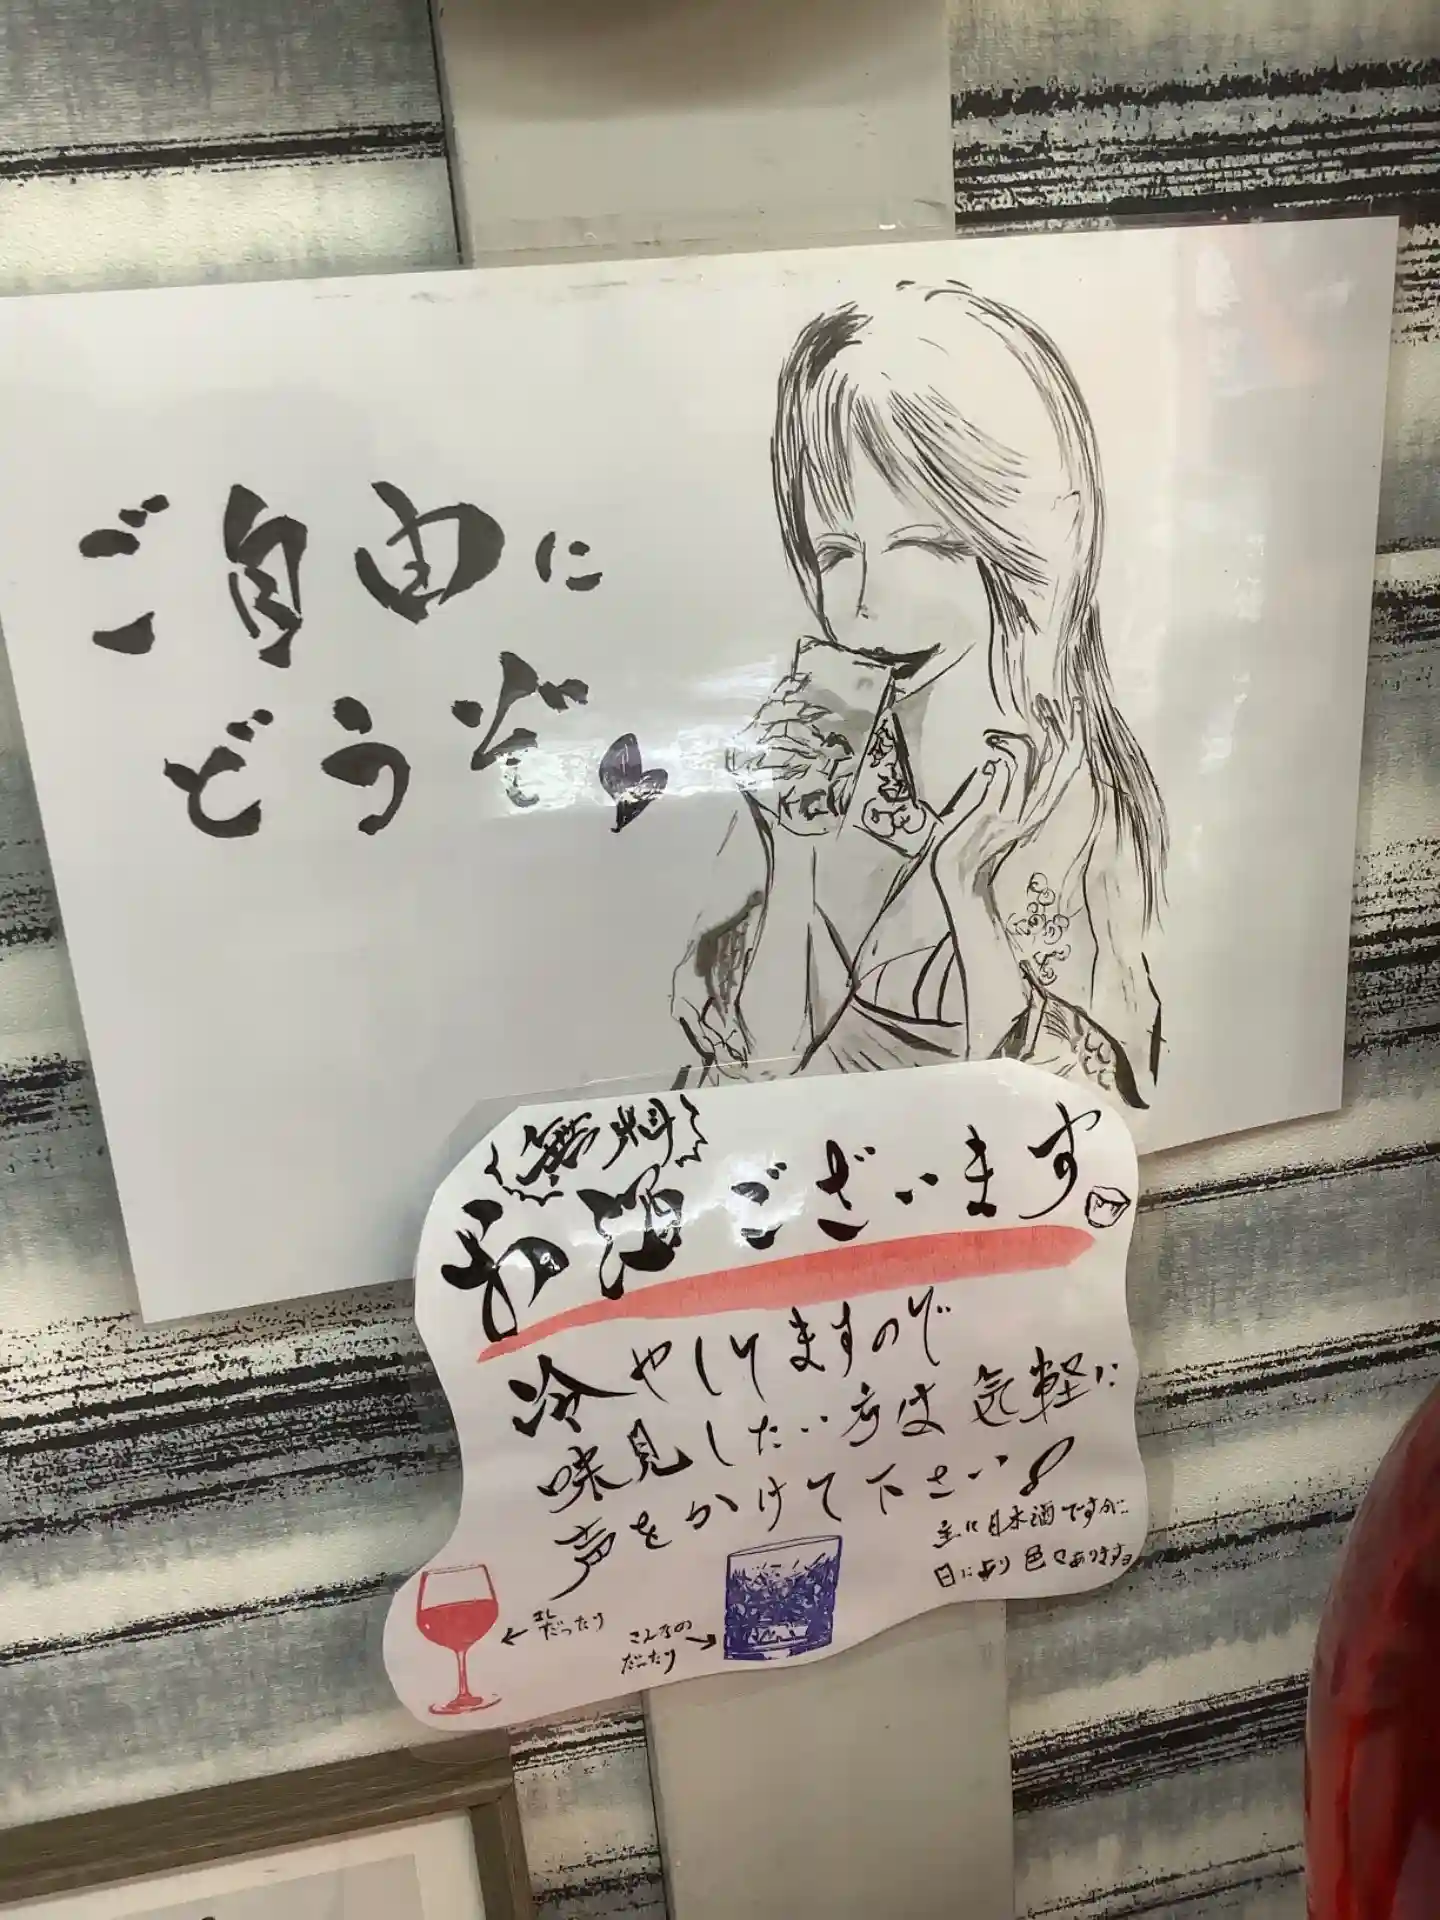 ご自由に
どうぞ
無料
お酒ございます。
冷やしてますので
味見したい方は気軽に
声をかけて下さい!
主に日本酒ですが
日により色々あります。
←コレだったり
こんなの→
だったり